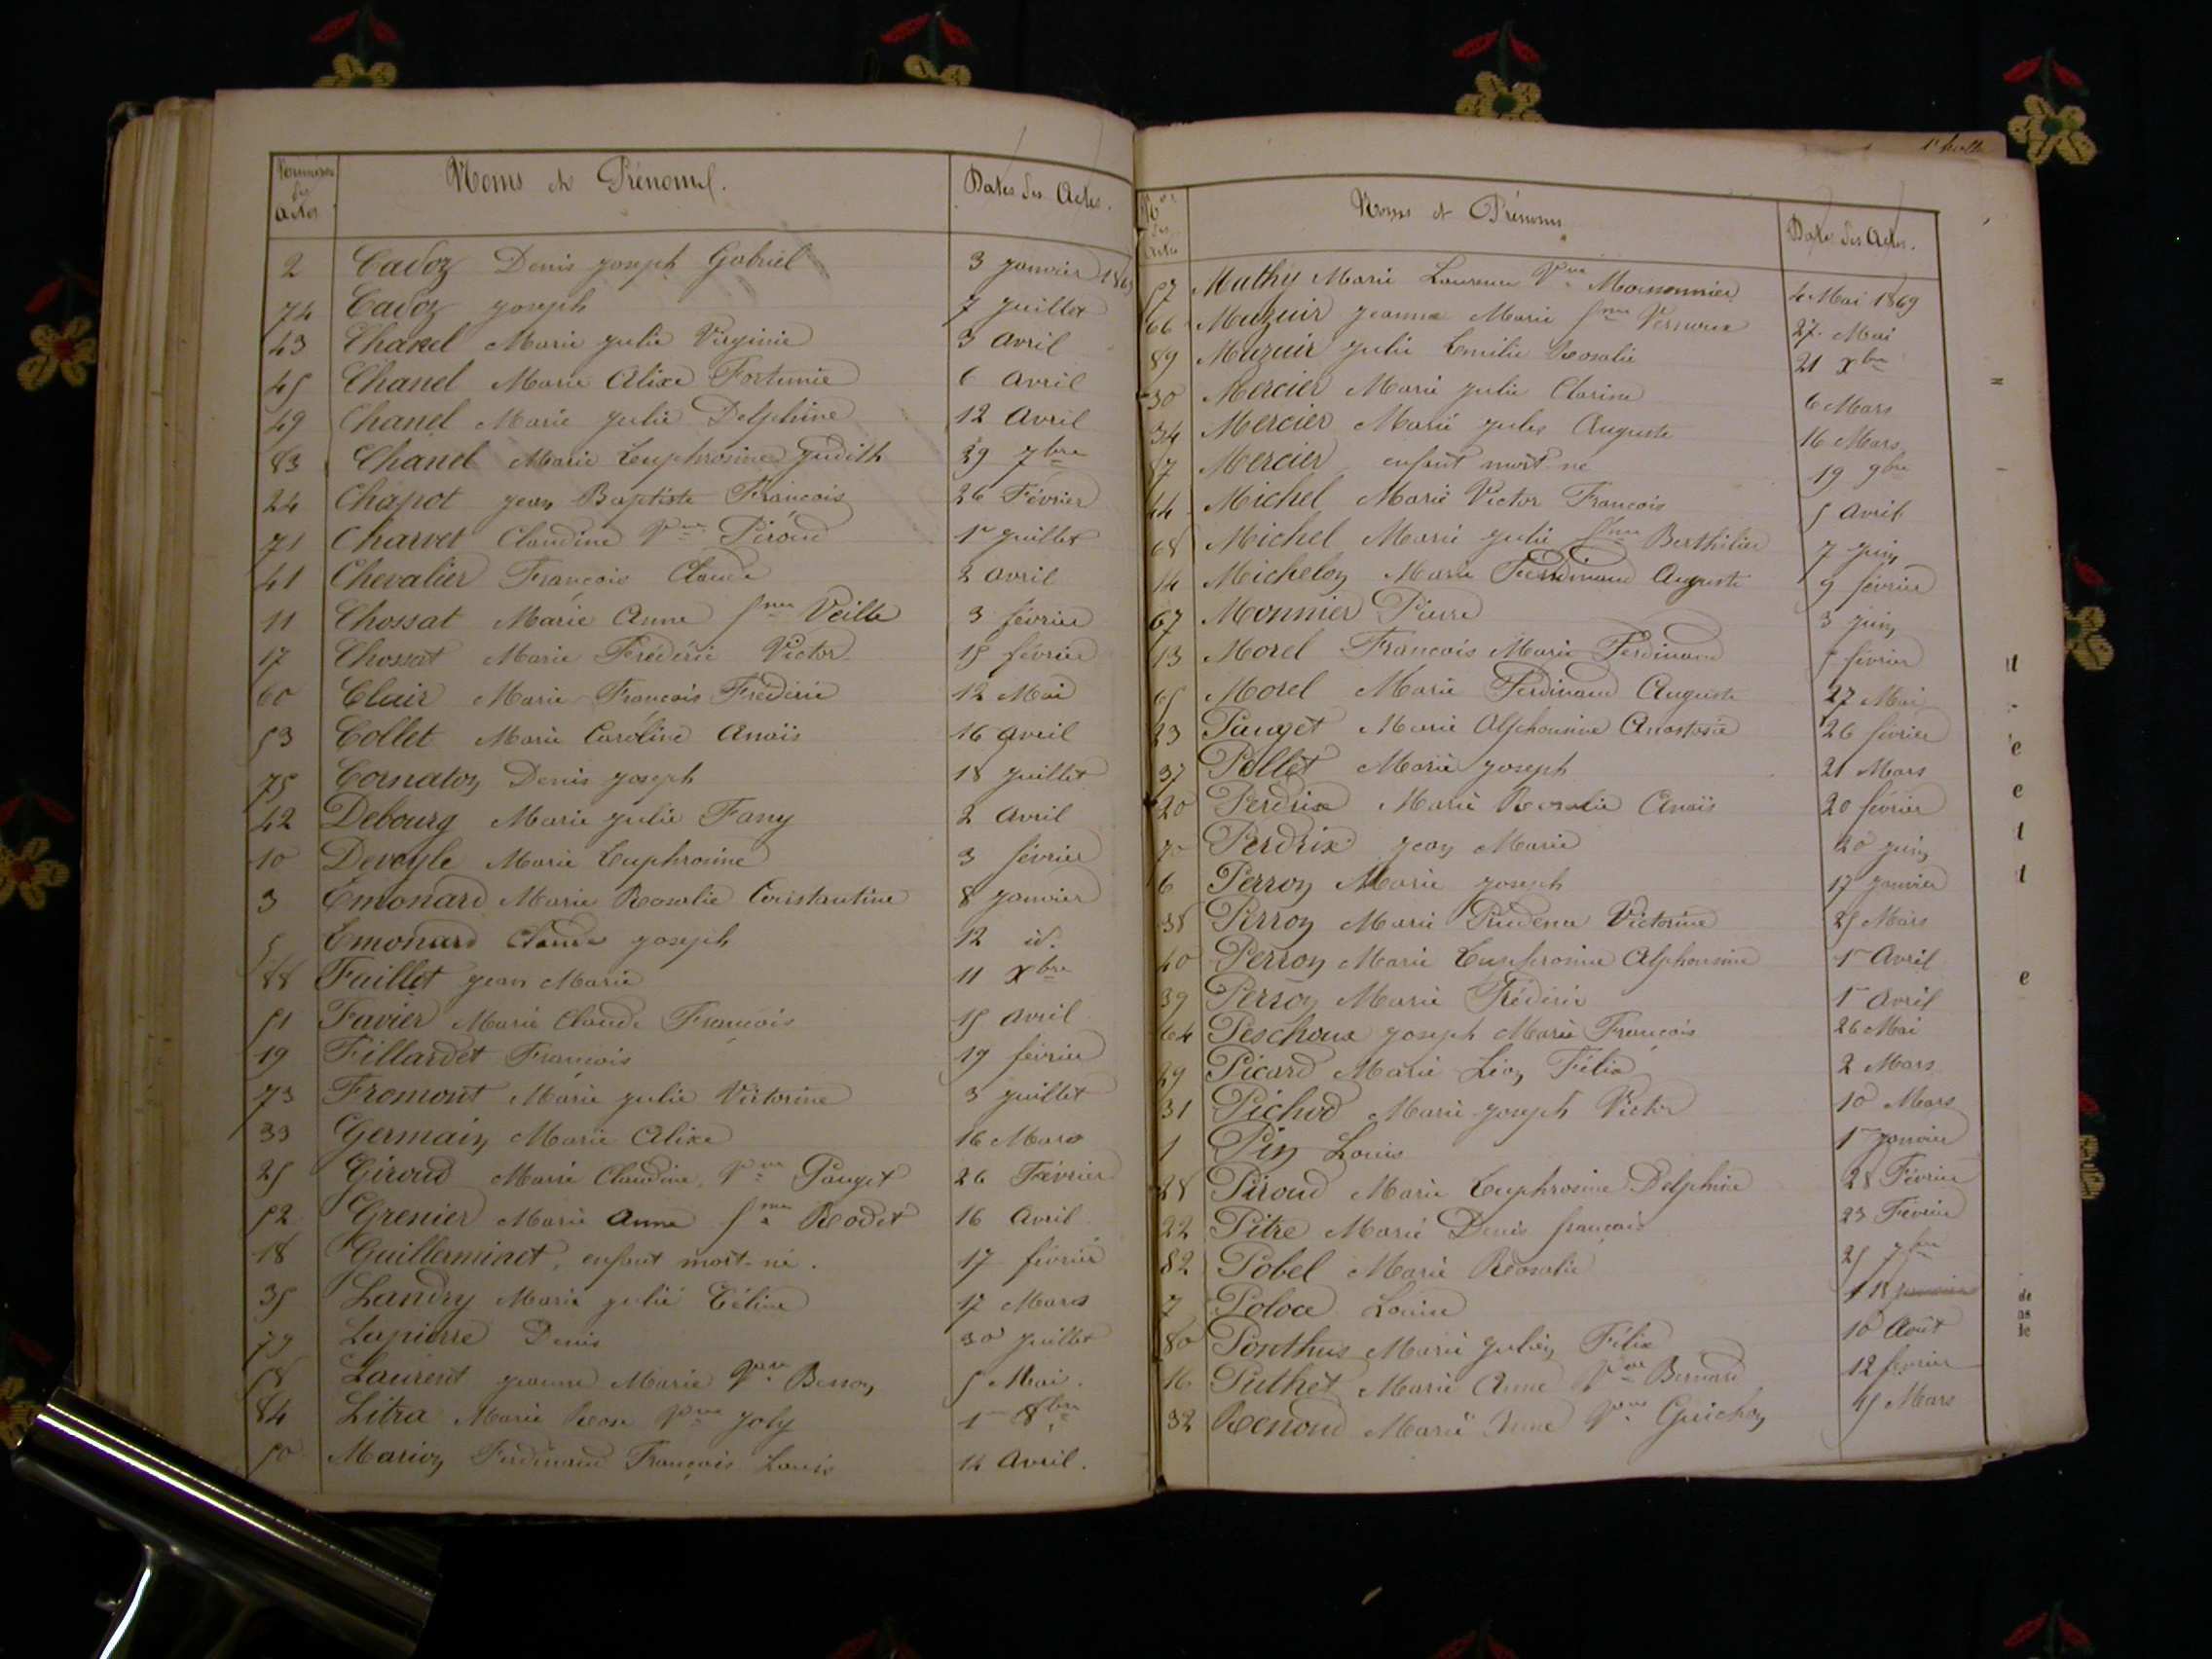 Numéros des Actes Noms et Prénoms. Dates des Actes.
2 Cadoz Denis joseph Gabriel 3 janvier 1869
74 Cadoz joseph 7 juillet
43 Chanel Marie julie Virginie 3 avril
45 Chanel Marie Alixe Fortunie 6 avril
49 Chanel Marie julie Delphine 12 avril
83 Chanel Marie Euphrosine Judith 29 7bre
24 Chapot jean Baptiste François 26 Février
71 Charvet Claudine Vve Piroud 1r juillet
41 Chevalier François Claude 2 avril
11 Chossat Marie Anne fme Veille 3 février
17 Chossat Marie Frédéric Victor 15 février
60 Clair Marie François Frédéric 12 Mai
53 Collet Marie Caroline Anaïs 16 avril
75 Cornaton Denis joseph 18 juillet
42 Debourg Marie julie Fany 2 avril
10 Deveyle Marie Euphrosine 3 février
3 Emonard Marie Rosalie Constantine 8 janvier
5 Emonard Claude joseph 12 id.
88 Faillet jean Marie 11 Xbre
51 Favier Marie Claude François 15 avril
19 Fillardet François 19 février
73 Fromont Marie julie Victorine 3 juillet
33 Germain Marie Alixe 16 Mars
25 Giroud Marie Claudine Vve Pauget 26 Février
52 Grenier Marie Anne fme Rodet 16 Avril
18 Guillerminet, enfant mort-né. 17 février
35 Landry Marie julie Céline 17 Mars
79 Lapierre Denis 30 juillet
58 Laurent jeanne Marie Vve Besson 5 Mai.
84 Litra Marie Rose Vve joly 1r 8bre
50 Marion Ferdinand François Louis 14 Avril.
Nos des Actes Noms et Prénoms Dates des Actes.
57 Mathy Marie Laurence Vve Moissonnier 4 Mai 1869
66 Mazuir jeanne Marie fme Vernoux 27 Mai
89 Mazuir julie Emilie Rosalie 21 Xbre
30 Mercier Marie julie Clarisse 6 Mars
34 Mercier Marie jules Auguste 16 Mars
87 Mercier enfant mort-né 19 9bre
44 Michel Marie Victor François 5 avril
68 Michel Marie julie fme Berthilier 7 juin
14 Michelon Marie Ferdinand Auguste 9 février
67 Monnier Pierre 3 juin
13 Morel François Marie Ferdinand 5 février
65 Morel Marie Ferdinand Auguste 27 Mai
23 Pauget Marie Alphonsine Anastasie 26 février
37 Pellet Marie joseph 21 Mars
20 Perdrix Marie Rosalie Anaïs 20 février
70 Perdrix jean Marie 20 juin
6 Perron Marie joseph 17 janvier
38 Perron Marie Prudence Victorine 25 Mars
40 Perron Marie Euphrosine Alphonsine 1r Avril
39 Perron Marie Frédéric 1r Avril
64 Peschoux joseph Marie François 26 Mai
29 Picard Marie Léon Félix 2 Mars
31 Pichod Marie joseph Victor 10 Mars
1 Pin Louis 1r janvier
28 Piroud Marie Euphrosine Delphine 28 Février
22 Pitre Marie Denis françois 23 Février
82 Pobel Marie Rosalie 25 7bre
7 Poloce Louise 18 janvier
80 Ponthus Marie julien Félix 10 Août
16 Puthet Marie Anne Vve Bernard 12 février
32 Renoud Marie Anne Vve Guichon 15 Mars